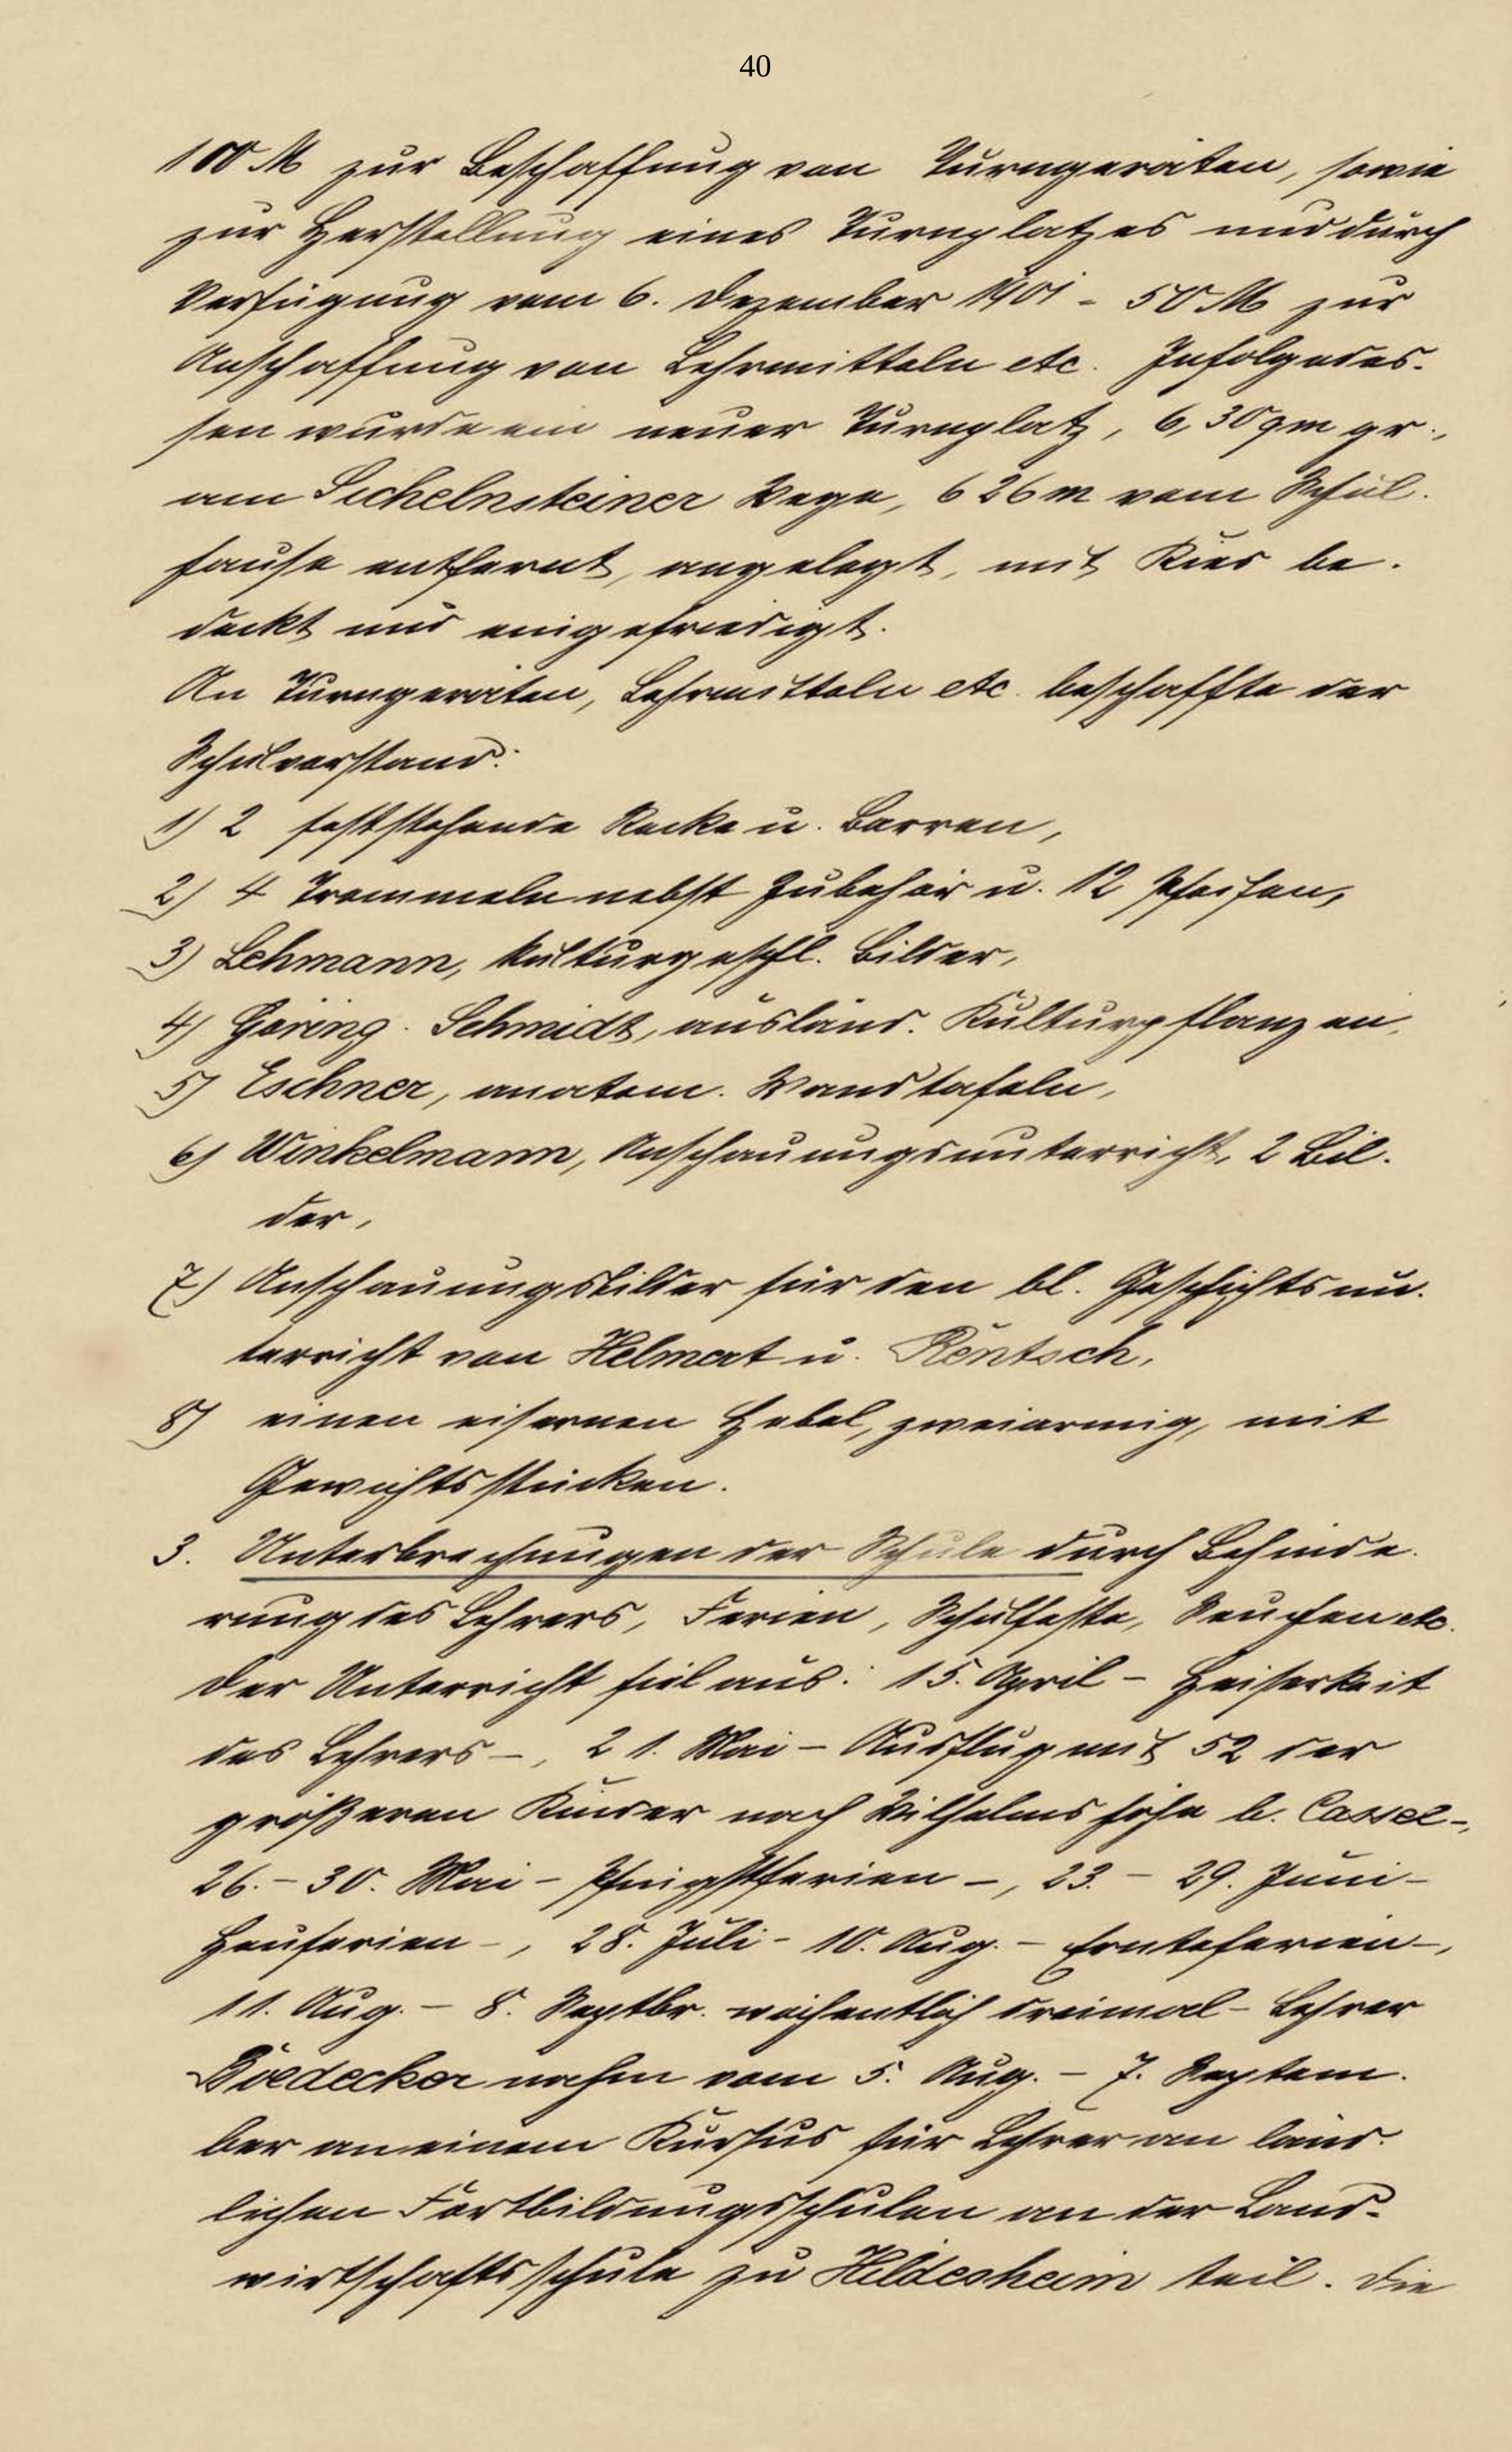 40
100 M zur Beschaffung von Turngeräten, sowie
zur Herstellung eines Turnplatzes und durch
Verfügung vom 6. Dezember 1901 - 50 M zur
Anschaffung von Lehrmitteln etc. Infolgedes-
sen wurde ein neuer Turnplatz, 6,30 qm gr.,
am Sichelnsteiner Wege, 626 m vom Schul-
hause entfernt, angelegt, mit Kies be-
deckt und eingefriedigt.
An Turngeräten, Lehrmitteln etc. beschaffte der
Schulvorstand:
1) 2 feststehende Recke u. Barren,
2) 4 Trommeln nebst Zubehör u. 12 Pfeifen,
3) Lehmann, kulturgeschl. Bilder,
4) Göring-Schmidt, ausländ. Kulturpflanzen,
5) Eschner, anatom. Wandtafeln,
6) Winkelmann, Anschauungsunterricht, 2 Bil-
der,
7) Anschauungsbilder für den bl. Geschichtsun-
terricht von Helmert u. Rentsch,
8) einen eisernen Hebel, zweiarmig, mit
Gewichtsstücken.
3. Unterbrechungen der Schule durch Behinde-
rung des Lehrers, Ferien, Schulfeste, Seuchen etc.
Der Unterricht fiel aus: 15. April - Heiserkeit
des Lehrers -, 21. Mai - Ausflug mit 52 der
größeren Kinder nach Wilhelmshöhe b. Cassel -,
26. - 30. Mai - Pfingstferien -, 23. - 29. Juni -
Heuferien -, 28. Juli - 10. Aug. - Ernteferien -,
11. Aug. - 8. Septbr. wöchentlich dreimal - Lehrer
Boedecker nahm vom 5. Aug. - 7. Septem-
ber an einem Kursus für Lehrer an länd-
lichen Fortbildungsschulen an der Land-
wirtschaftsschule zu Hildesheim teil. Die